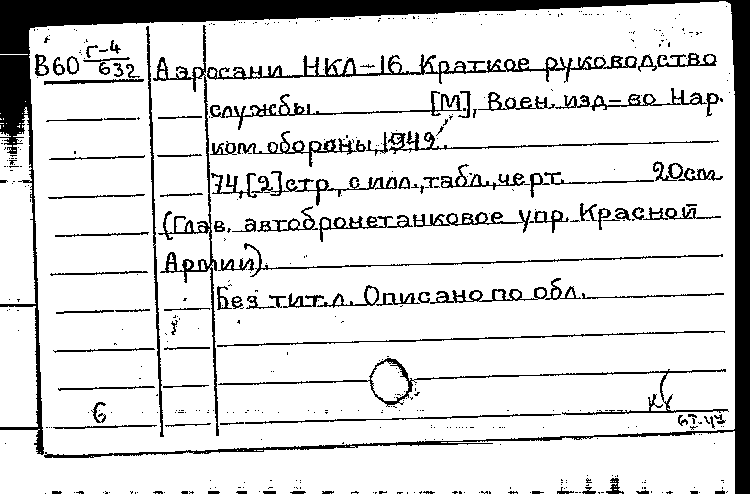 В60 Г-4/632 Аэросани НКЛ-16. Краткое руководство
службы. [М], Воен. изд-во Нар.
ком. обороны, 1942.
74,[2]стр., с илл., табл., черт. 20см
(Глав. автобронетанковое упр. Красной
Армии).
Без тит.л. Описано по обл.
6
6I-47